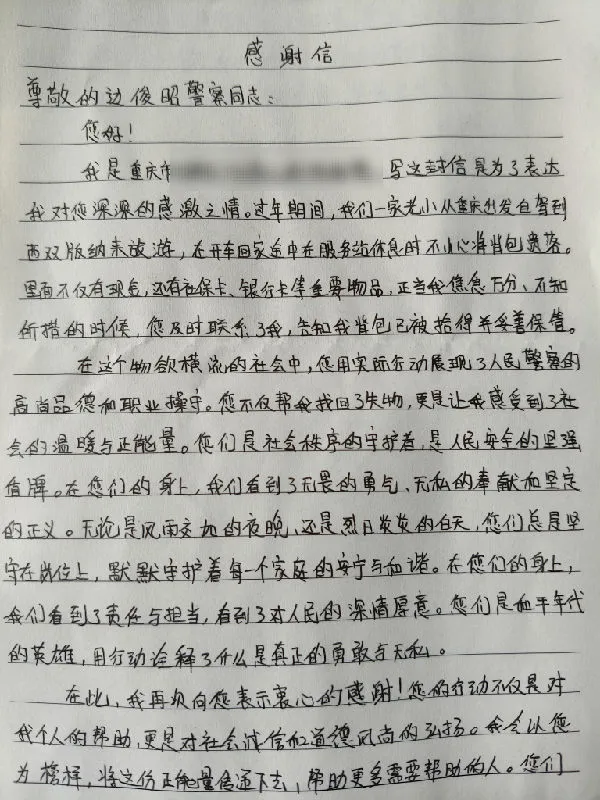 感谢信
尊敬的边俊昭警察同志:
您好!
我是重庆市 写这封信是为了表达
我对您深深的感激之情。过年期间,我们一家老小从重庆出发自驾到
西双版纳来旅游,在开车回家途中在服务站休息时不小心将背包遗落。
里面不仅有现金,还有社保卡、银行卡等重要物品,正当我焦急万分、不知
所措的时候,您及时联系了我,告知我背包已被拾得并妥善保管。
在这个物欲横流的社会中,您用实际行动展现了人民警察的
高尚品德和职业操守。您不仅帮我找回了失物,更是让我感受到了社
会的温暖与正能量。您们是社会秩序的守护着,是人民安全的坚强
盾牌。在您们的身上,我们看到了无畏的勇气、无私的奉献和坚定
的正义。无论是风雨交加的夜晚,还是烈日炎炎的白天,您们总是坚
守在岗位上,默默守护着每一个家庭的安宁与和谐。在您们的身上,
我们看到了责任与担当,看到了对人民的深情厚意。您们是和平年代
的英雄,用行动诠释了什么是真正的勇敢与无私。
在此,我再次向您表示衷心的感谢!您的行动不仅是对
我个人的帮助,更是对社会诚信和道德风尚的弘扬。我会以您
为榜样,将这份正能量传递下去,帮助更多需要帮助的人。您们